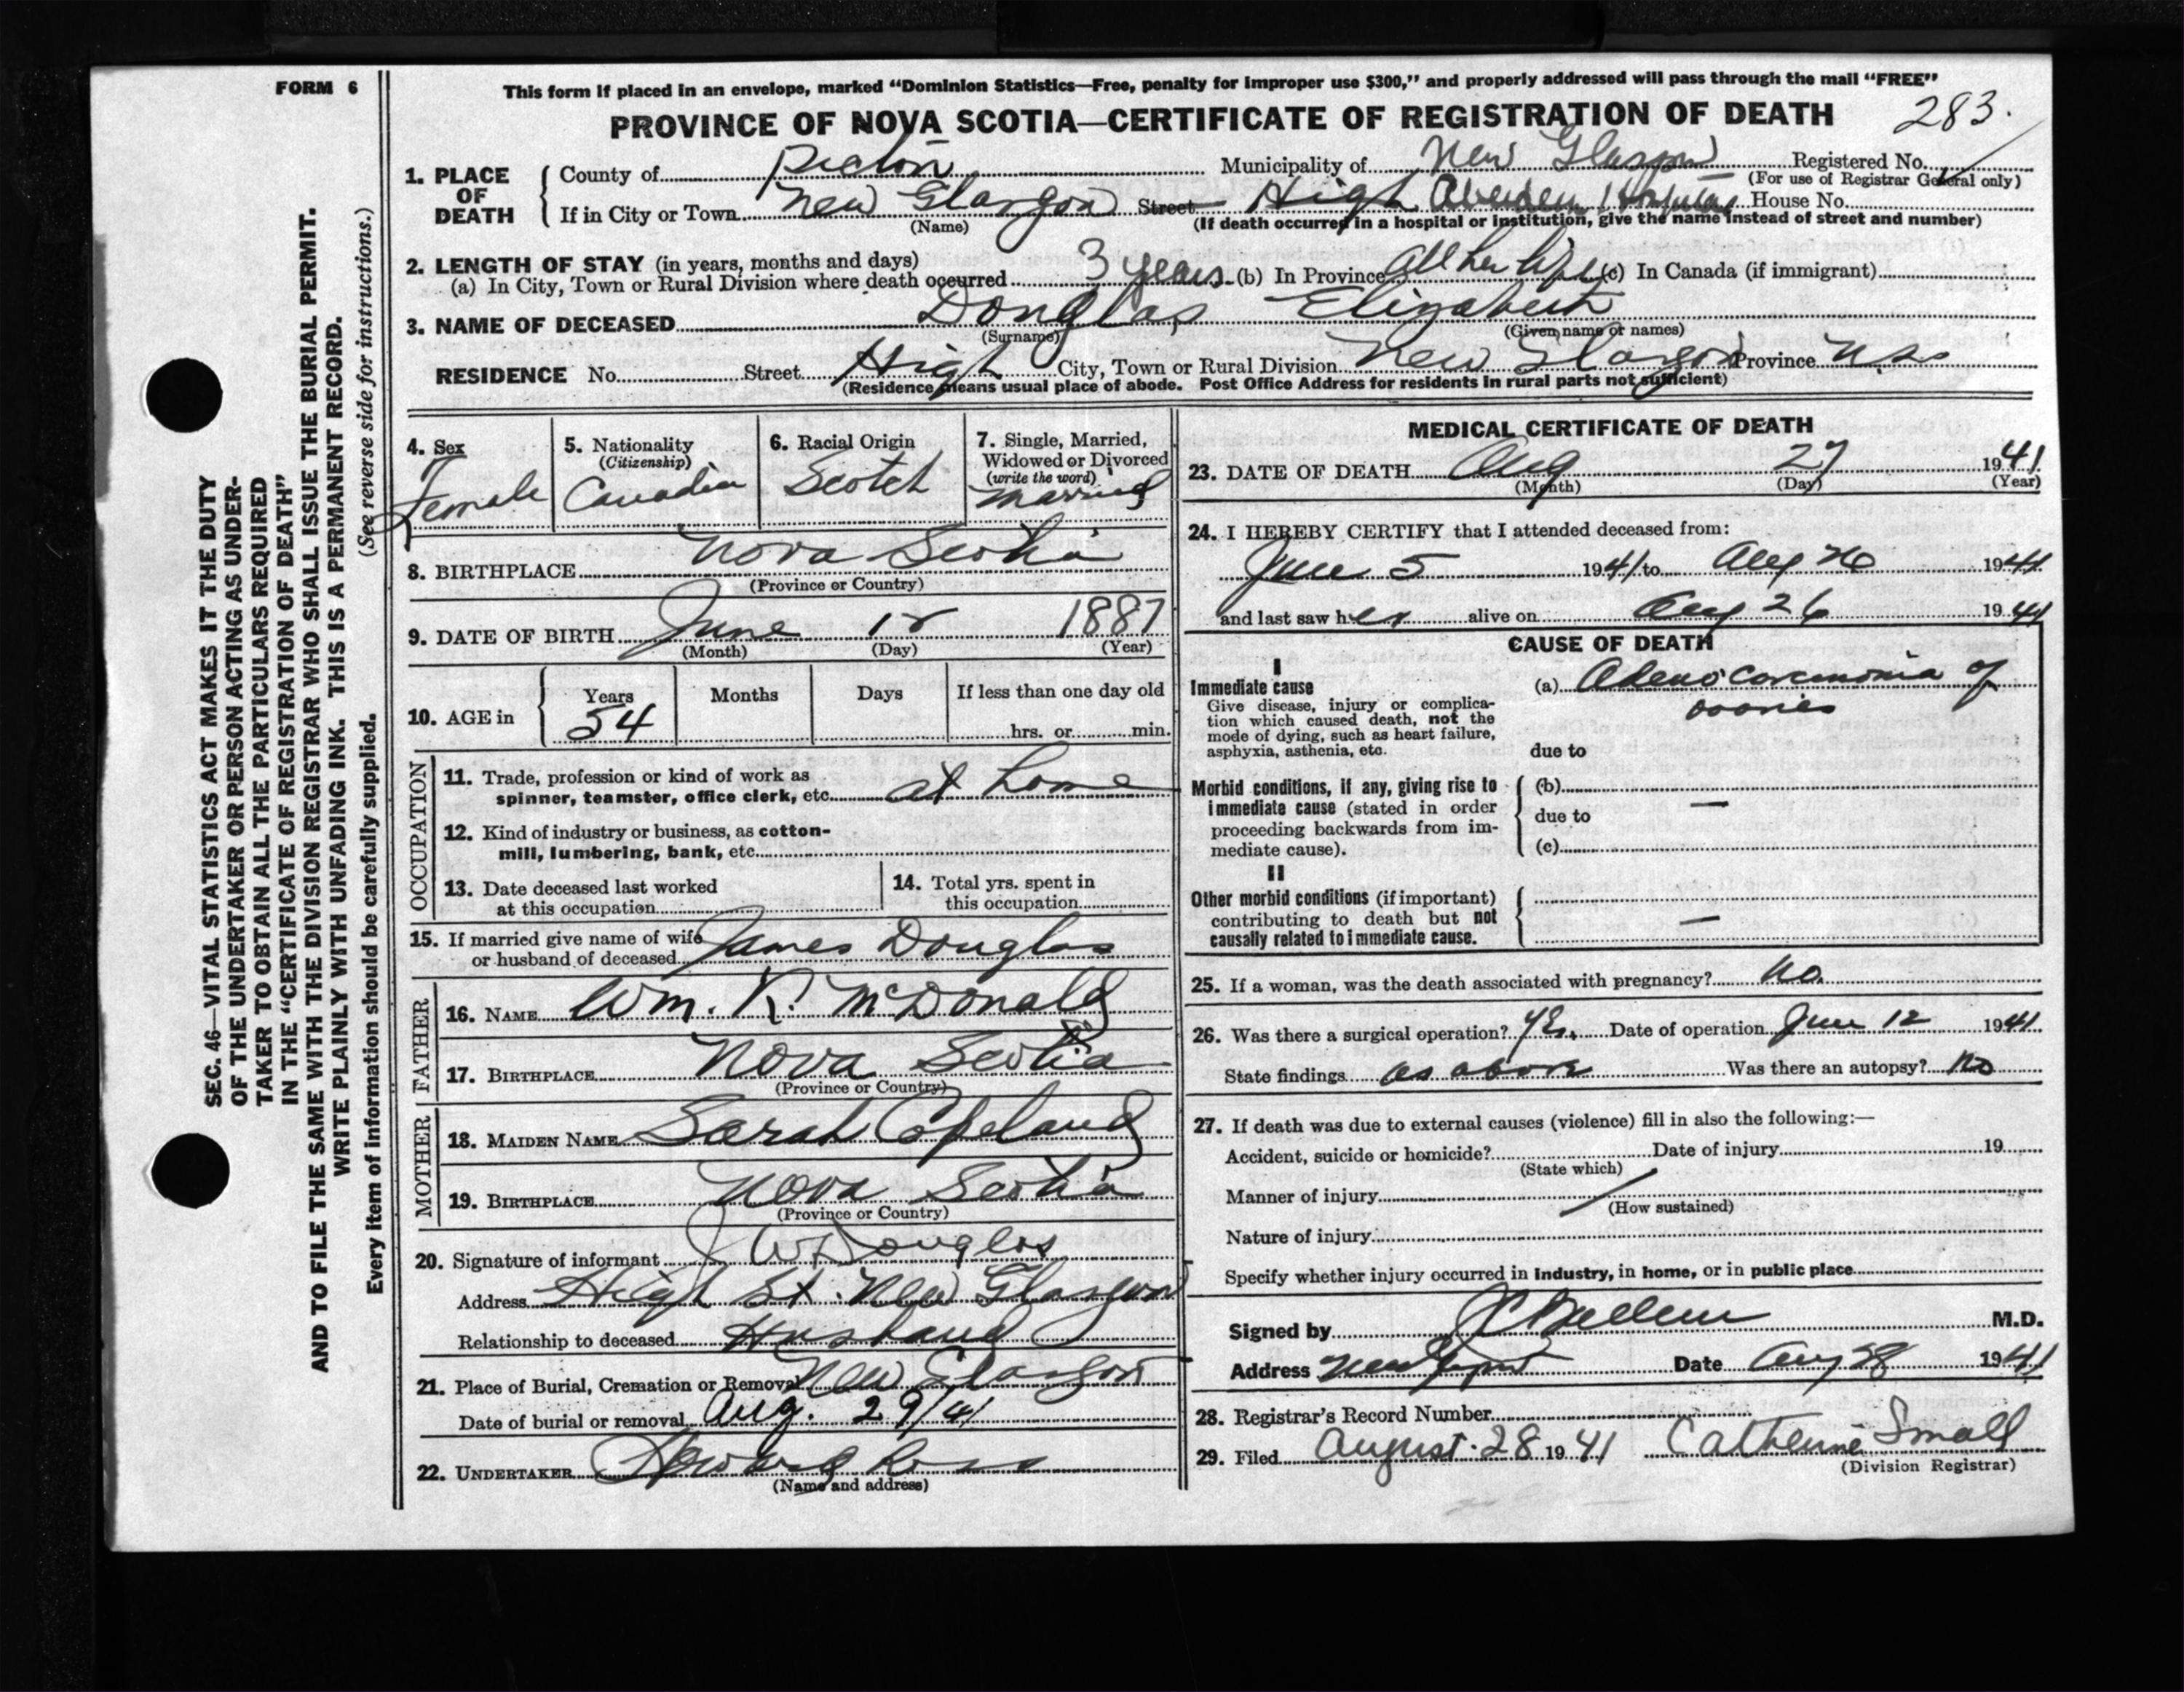 FORM 6
This form if placed in an envelope, marked "Dominion Statistics—Free, penalty for improper use $300," and properly addressed will pass through the mail "FREE"
PROVINCE OF NOVA SCOTIA—CERTIFICATE OF REGISTRATION OF DEATH
283.
SEC. 46—VITAL STATISTICS ACT MAKES IT THE DUTY
OF THE UNDERTAKER OR PERSON ACTING AS UNDER-
TAKER TO OBTAIN ALL THE PARTICULARS REQUIRED
IN THE "CERTIFICATE OF REGISTRATION OF DEATH"
AND TO FILE THE SAME WITH THE DIVISION REGISTRAR WHO SHALL ISSUE THE BURIAL PERMIT.
WRITE PLAINLY WITH UNFADING INK. THIS IS A PERMANENT RECORD.
(See reverse side for instructions.)
Every item of information should be carefully supplied.
1. PLACE OF DEATH
County of Pictou Municipality of New Glasgow Registered No.
(For use of Registrar General only)
If in City or Town New Glasgow Street High Aberdeen Hospital House No.
(Name) (If death occurred in a hospital or institution, give the name instead of street and number)
2. LENGTH OF STAY (in years, months and days)
(a) In City, Town or Rural Division where death occurred 3 years (b) In Province All her life (c) In Canada (if immigrant)
3. NAME OF DECEASED Douglas Elizabeth
(Surname) (Given name or names)
RESIDENCE No. Street High City, Town or Rural Division New Glasgow Province N.S.
(Residence means usual place of abode. Post Office Address for residents in rural parts not sufficient)
4. Sex
Female
5. Nationality
(Citizenship)
Canadian
6. Racial Origin
Scotch
7. Single, Married,
Widowed or Divorced
(write the word)
Married
8. BIRTHPLACE Nova Scotia
(Province or Country)
9. DATE OF BIRTH June 12 1887
(Month) (Day) (Year)
10. AGE in Years Months Days If less than one day old
54 hrs. or min.
OCCUPATION
11. Trade, profession or kind of work as
spinner, teamster, office clerk, etc. at home
12. Kind of industry or business, as cotton-
mill, lumbering, bank, etc.
13. Date deceased last worked
at this occupation
14. Total yrs. spent in
this occupation
15. If married give name of wife
or husband of deceased James Douglas
FATHER
16. NAME Wm. R. McDonald
17. BIRTHPLACE Nova Scotia
(Province or Country)
MOTHER
18. MAIDEN NAME Sarah Copeland
19. BIRTHPLACE Nova Scotia
(Province or Country)
20. Signature of informant J W Douglas
Address High St. New Glasgow
Relationship to deceased Husband
21. Place of Burial, Cremation or Removal New Glasgow
Date of burial or removal Aug. 29/41
22. UNDERTAKER Howard Ross
(Name and address)
MEDICAL CERTIFICATE OF DEATH
23. DATE OF DEATH Aug 27 1941
(Month) (Day) (Year)
24. I HEREBY CERTIFY that I attended deceased from:
June 5 1941 to Aug 26 1941
and last saw her alive on Aug 26 1941
CAUSE OF DEATH
I
Immediate cause
Give disease, injury or complica-
tion which caused death, not the
mode of dying, such as heart failure,
asphyxia, asthenia, etc.
(a) Adeno carcinonia of
ovaries
due to
Morbid conditions, if any, giving rise to
immediate cause (stated in order
proceeding backwards from im-
mediate cause).
(b)
—
due to
(c)
II
Other morbid conditions (if important)
contributing to death but not
causally related to immediate cause.
—
25. If a woman, was the death associated with pregnancy? No.
26. Was there a surgical operation? Yes. Date of operation June 12 1941
State findings as above Was there an autopsy? No
27. If death was due to external causes (violence) fill in also the following:—
Accident, suicide or homicide? Date of injury 19
(State which)
Manner of injury
(How sustained)
Nature of injury
Specify whether injury occurred in industry, in home, or in public place
Signed by M.D.
Address Date Aug 28 1941
28. Registrar's Record Number
29. Filed August. 28 1941 Catherine Small
(Division Registrar)